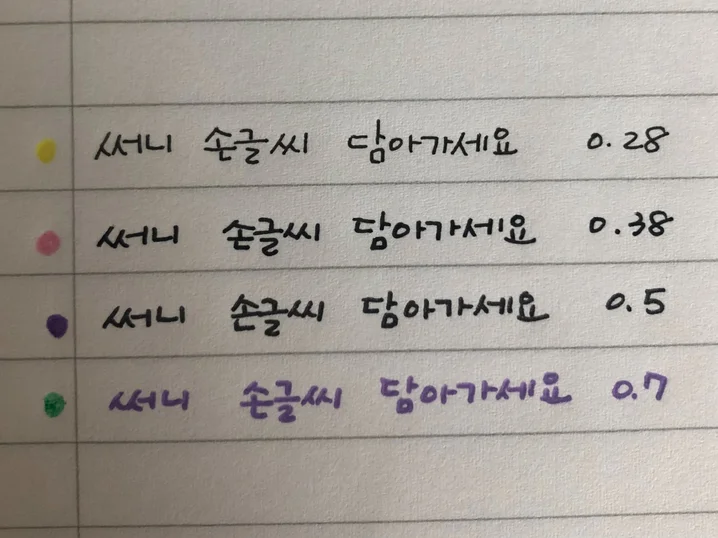 써니 손글씨 담아가세요 0.28
써니 손글씨 담아가세요 0.38
써니 손글씨 담아가세요 0.5
써니 손글씨 담아가세요 0.7